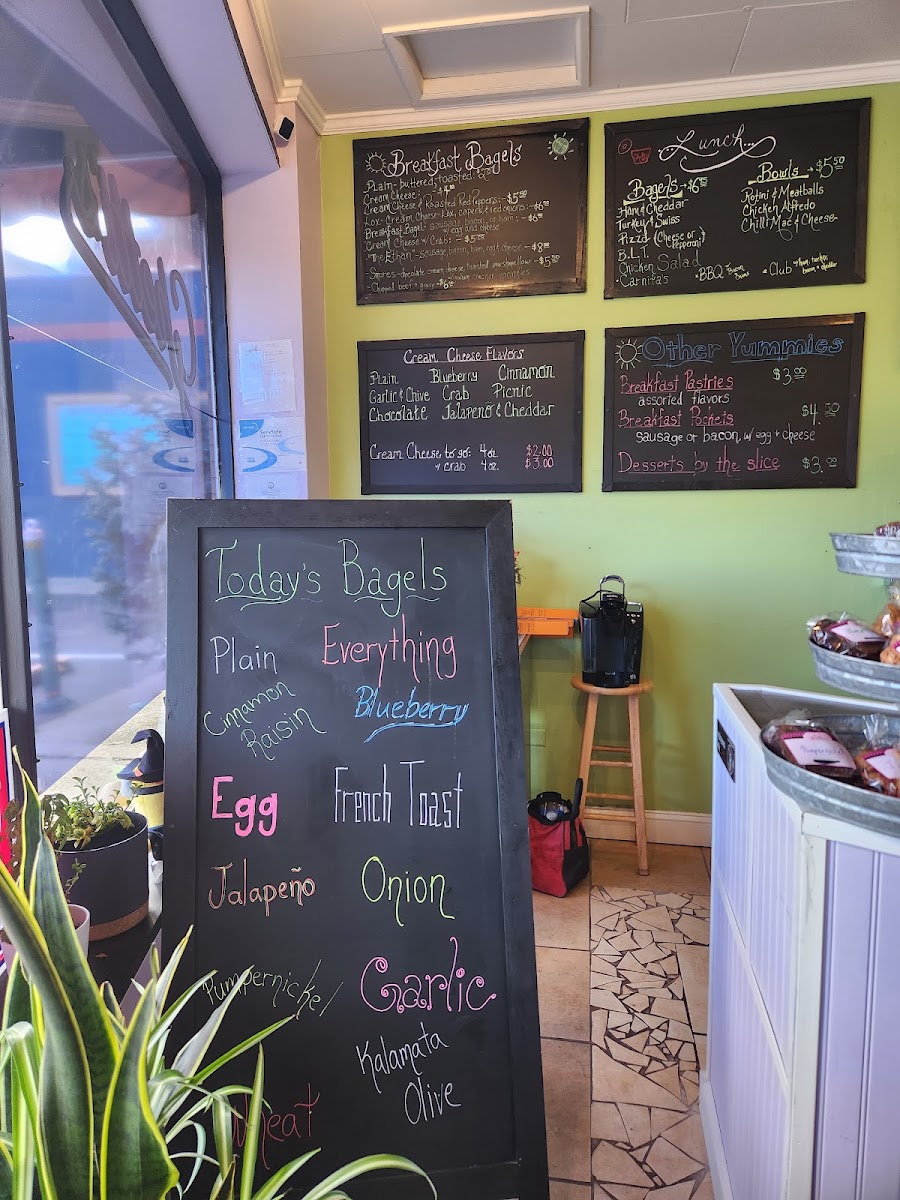 Breakfast Bagels
Plain - buttered, toasted:
Cream Cheese:
Cream Cheese & Roasted Red Peppers - $5.50
Lox - Cream Cheese, Lox, capers, & red onions - $6.50
Breakfast Bagel: sausage, bacon, or ham: - $6.50
w/ egg and cheese
Cream Cheese w/ Crab: - $5.50
The Ethan - sausage, bacon, ham, egg & cheese - $8.00
S'mores - chocolate cream cheese, toasted marshmallow - $5.50
Chipped beef & gravy - $6.50
Lunch
Bagels → $6.50
Ham & Cheddar
Turkey & Swiss
Pizza (Cheese or Pepperoni)
B.L.T.
Chicken Salad
Carnitas
BBQ
Club
Bowls → $5.50
Rotini & Meatballs
Chicken Alfredo
Chilli Mac & Cheese
Cream Cheese Flavors
Plain Blueberry Cinnamon
Garlic & Chive Crab Picnic
Chocolate Jalapeño & Cheddar
Cream Cheese to go: 4 oz. $2.00
crab 4 oz. $3.00
Other Yummies
Breakfast Pastries $3.00
assorted flavors
Breakfast Pockets $4.50
sausage or bacon w/ egg & cheese
Desserts by the slice $3.00
Today's Bagels
Plain Everything
Cinnamon Raisin Blueberry
Egg French Toast
Jalapeño Onion
Pumpernickel Garlic
Kalamata
Olive
Wheat
Pumpernickel